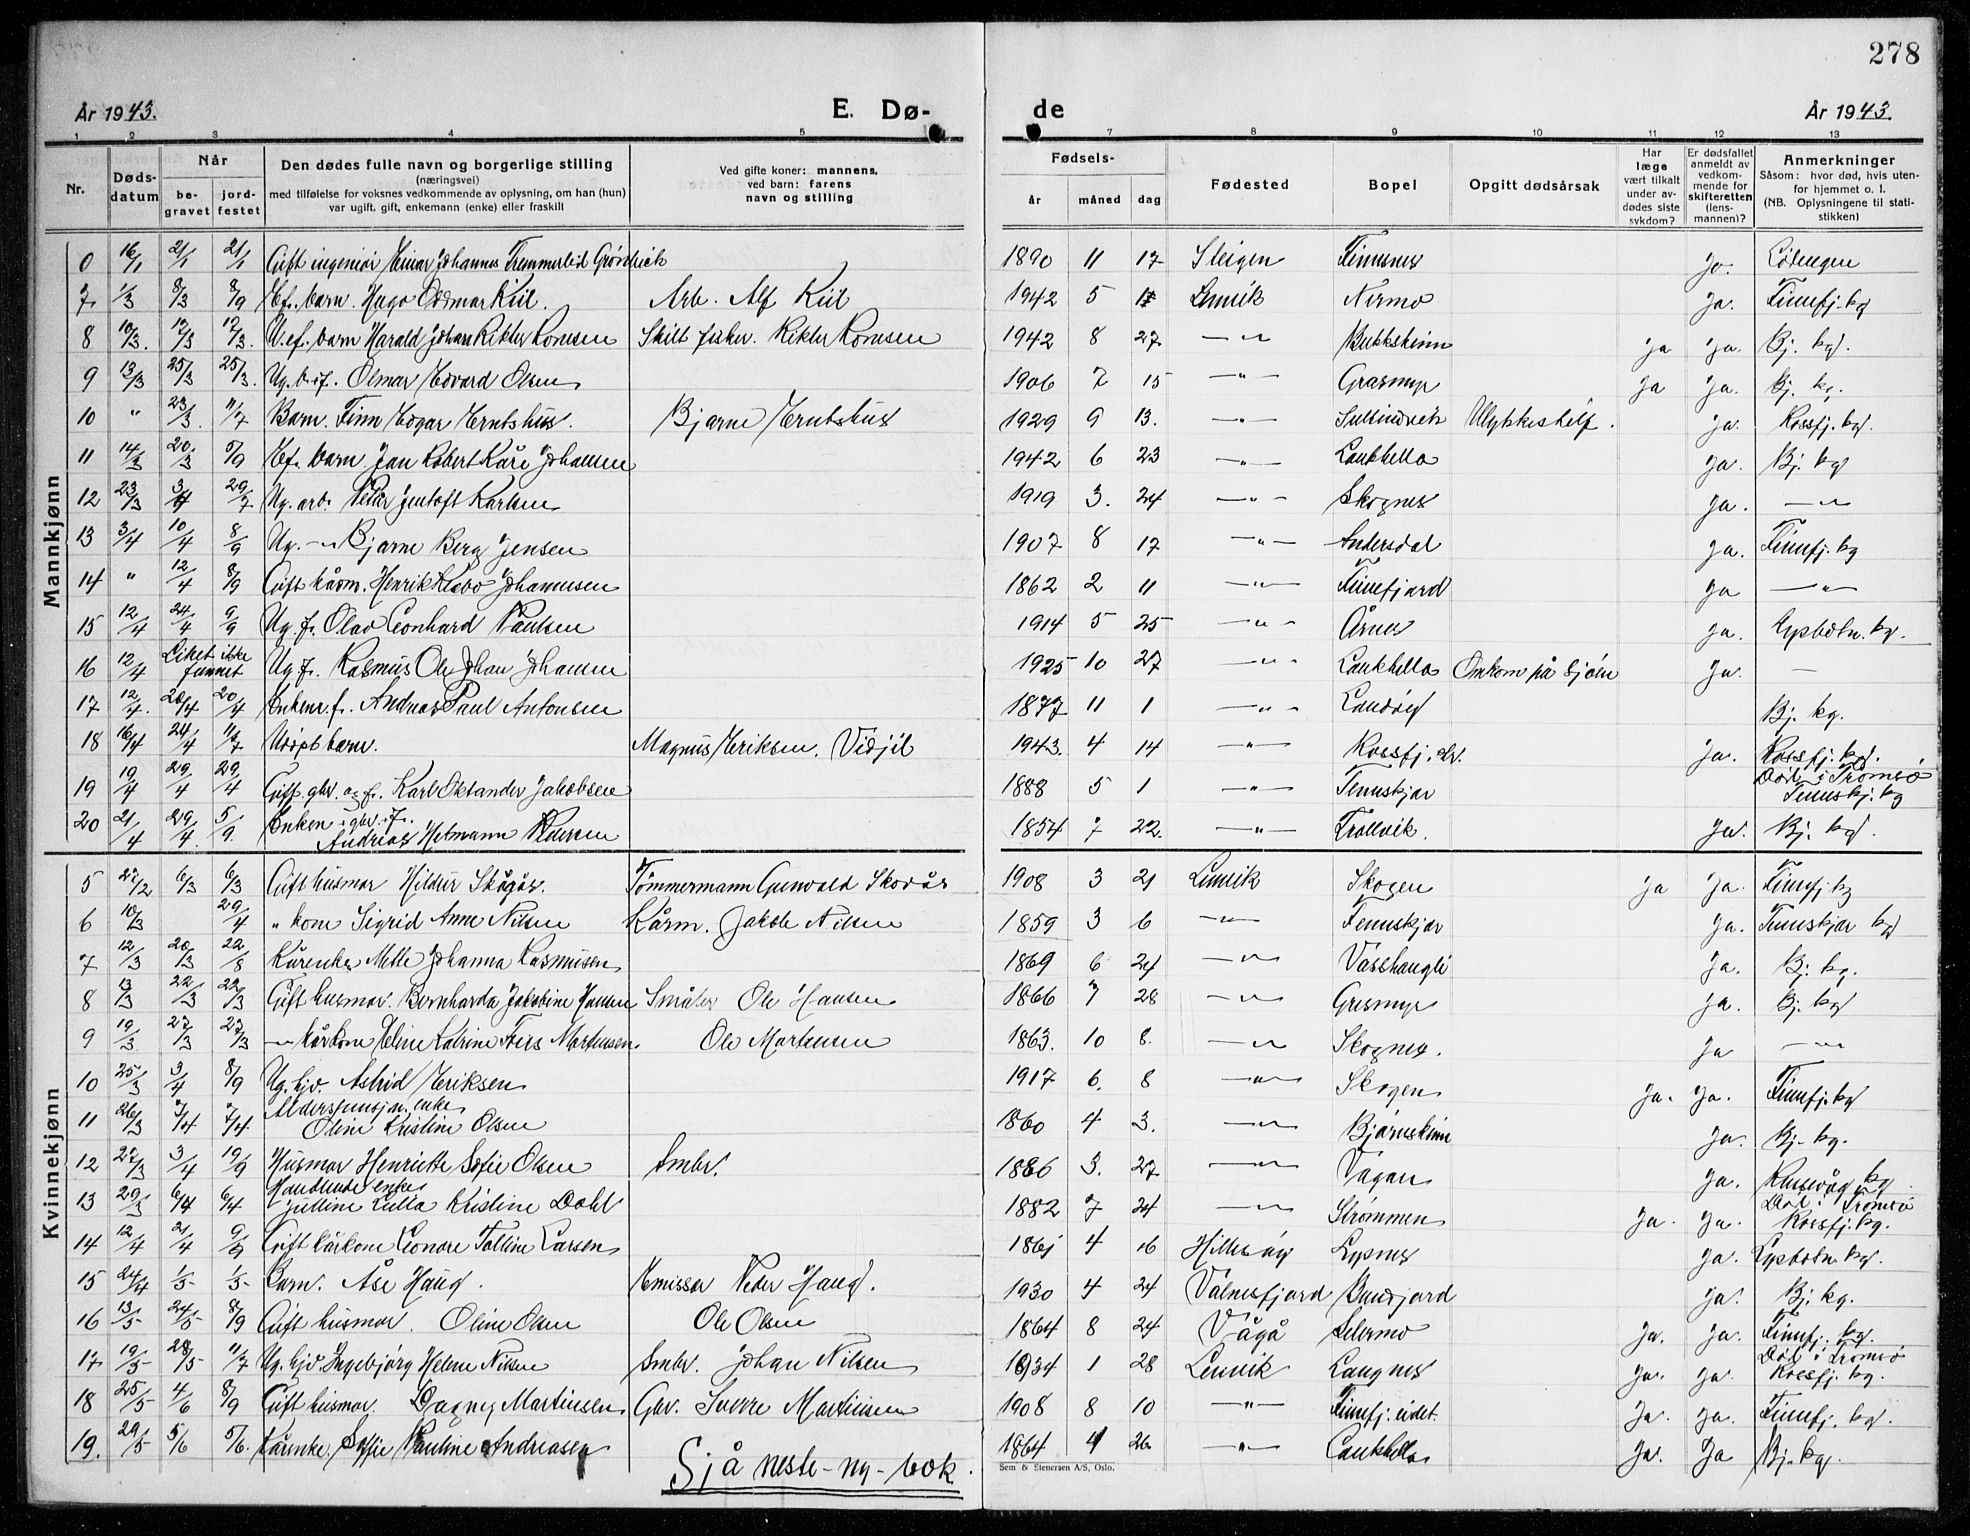 278
År 1943. E. Dø- de År 1943.
1 2 3 4 5 7 8 9 10 11 12 13
Nr. Dødsdatum Når begravet jordfestet
Den dødes fulle navn og borgerlige stilling
(næringsvei)
med tilføielse for voksnes vedkommende av oplysning, om han (hun)
var ugift, gift, enkemann (enke) eller fraskilt
Ved gifte koner: mannens,
ved barn: farens
navn og stilling
Fødsels- år måned dag
Fødested Bopel Opgitt dødsårsak
Har læge vært tilkalt under avdødes siste sykdom?
Er dødsfallet anmeldt av vedkommende for skifteretten (lensmannen)?
Anmerkninger
Såsom: hvor død, hvis utenfor hjemmet o. l.
(NB. Oplysningene til statistikken)
Mannkjønn
0 16/1 21/1 21/1 Gift ingeniør Einar Johannes 1890 11 17 Steigen Finnsnes Ja. Lødingen
7 1/3 8/3 8/9 Ef. barn. Hugo Oddmar Kiil. Arb. Alf Kiil 1942 5 Lenvik Nermo Ja. Finnfj. kg
8 10/3. 17/3 17/3. U.ef. barn Harald Johan Rikter Konesen Skilt fisker. Rikter Konesen 1942 8 27 -"- Bukkskinn Ja Ja. Bj. kg.
9 13/3 25/3 25/3. Ug. Olmar Edvard Olsen 1906 7 15 -"- Grasmyr Ja Ja. Bj. kg.
10 " 23/3. 11/7 Barn. Finn Edgar Erntshus. Bjarne Erntshus 1929 9 13. -"- Sultindvik Ulykkestilf. Ja. Rossfj. kg.
11 14/3 20/3 5/9 Ef. barn. Jan Robert Kåre Johansen 1942 6 23 -"- Laukhella Ja. Bj. kg
12 23/3 3/4 29/7 Ug. arb. Peter Jentoft Karlsen 1919 3. 24 -"- Skognes Ja. -"-
13 3/4 10/4 8/9 Ug. -"- Bjarne Berg Jensen 1907 8 17 -"- Andersdal Ja. Finnfj. kg
14 " 12/4 8/9 Gift kårm. Henrik Klæbo Johannesen 1862 2 11 -"- Finnfjord Ja -"-
15 12/4 24/4 9/9 Ug. f. Olav Leonhard Paulsen 1914 5 25 -"- Årnes Ja. Lysbotn. kg.
16 12/4 Liket ikke funnet Ug. f. Rasmus Ole Johan Johansen 1925 10 27 -"- Laukhella Omkom på Sjøen Ja. -
17 12/4. 20/4 20/4 Enkem. f. Andreas Paul Antonsen 1877 11 1 -"- Landøy Bj. kg.
18 16/4 24/4 11/7 Udøpt barn. Magnus Eriksen, Vidjil 1943. 4 14 -"- Rossfj. str. Ja. Rossfj. kg.
19 19/4 29/4 29/4 Gift. gbr. og f. Karl Oktander Jakobsen 1888 5 1 -"- Tennskjær Død i Tromsø Tennskj. kg
20 21/4 29/4. 5/9. Enkem. gbr. f. Andreas Hetmann Pedersen 1854 7 22. -"- Trollvik. Ja. Bj. kg.
Kvinnekjønn
5 27/2 6/3 6/3 Gift husmor Hildur Skogås. Tømmermann Gunvald Skogås 1908 3 21 Lenvik Skogen Ja Ja. Finnfj. kg
6 10/3 29/4 " kone Sigrid Anne Nilsen Kårm. Jakob Nilsen 1859 3 6 -"- Tennskjær Ja. Tennskjær kg
7 12/3 20/3 22/8 Kårenke Mette Johanna Rasmussen 1869 6 24 -"- Vasshaugli Ja. Bj. kg.
8 13/3 22/3 22/3 Gift husmor. Bernharda Jakobine Hansen Småbr Ole Hansen 1866 7 28 -"- Grasmyr Ja. Bj. kg
9 19/3 27/3 27/3 -"- kårkone Eline Katrine Friis Mortensen. Ole Mortensen 1863. 10 8. -"- Skognes. Ja -"-
10 25/3 3/4 8/9 Ug. hjv. Astrid Eriksen 1917 6. 8 -"- Skogen Ja. Ja. Finnfj. kg
11 26/3 7/4 7/4 Alderspensjon. enke Oline Kristine Olsen 1860 4 3. -"- Bjørnskinn Ja. Bj. kg.
12 27/3 3/4 19/9 Husmor Henriette Sofie Olsen Smbr. 1886 3. 27 -"- Vågan Ja. kg
13 29/3 6/4 6/4 Handlende enke Julline Lulla Kristine Dahl 1882 7 24 -"- Strømmen Ja. Ja. Død i Tromsø Rossfj. kg.
14 12/4 21/4 9/9 Gift kårkone Leonore Larsen 186 4 16 Hillesøy Lysnes Ja. Lysbotn. kg.
15 24/4 1/5 1/5 Barn. Åse Haug. Emissær Peder Haug. 1930 4 24 Valnesfjord Ja. Bj. kg.
16 13/5 24/5 8/9 Gift husmor. Oline Olsen Ole Olsen 1864 8 24 Vågå Selermo Ja. Ja. Finnfj. kg.
17 19/5 28/5 11/7 Ug. hjv. Ingebjørg Helene Nilsen Smbr. Johan Nilsen 1934 1 28 Lenvik Langnes Ja. Ja. Død i Tromsø Rossfj. kg.
18 25/5 4/6 8/9 Gift husmor. Dagny Martinsen Gbr. Sverre Martinsen 1908 8 10 -"- Finnfj. eidet. Ja. Ja. Finnfj. kg.
19. 29/5 5/6 5/6. Kårenke. Soffie Pauline Andreasen 1864 4 26. " Laukhella Ja. Ja Bj. kg.
Sjå neste-ny-bok.
Sem & Stenersen A/S, Oslo.